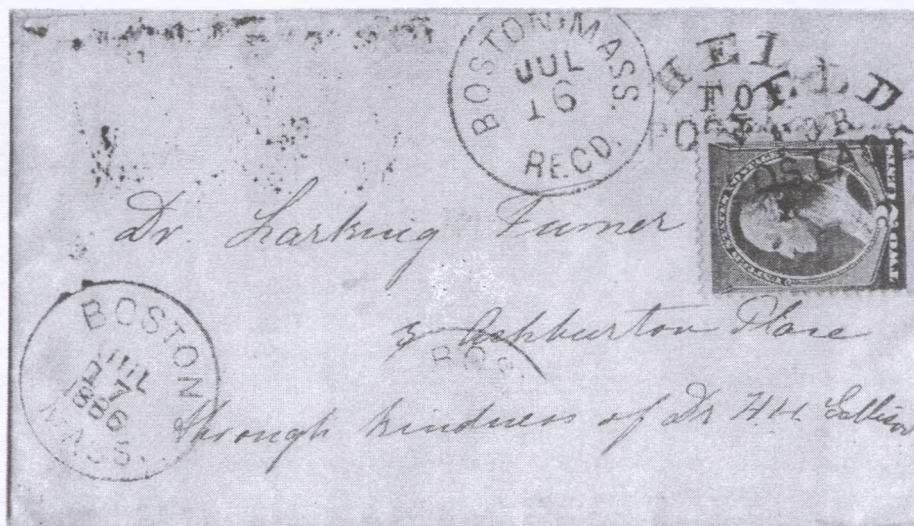 BOSTON, MASS.
JUL
16
RECD.
HELD
FOR
POSTAGE
Dr. Larking Turner
3 Ashburton Place
BOS
BOSTON
JUL
17
1886
MASS.
through kindness of Dr H.H.